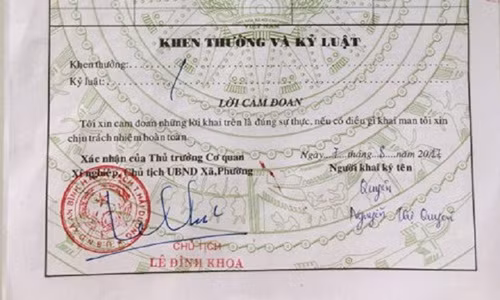 KHEN THƯỞNG VÀ KỶ LUẬT
Khen thưởng:
Kỷ luật:
LỜI CAM ĐOAN
Tôi xin cam đoan những lời khai trên là đúng sự thực, nếu có điều gì khai man tôi xin
chịu trách nhiệm hoàn toàn.
Xác nhận của Thủ trưởng Cơ quan
Xí nghiệp, Chủ tịch UBND Xã,Phường
Ngày 7 tháng 8 năm
Người khai ký tên
Quyên
Nguyễn Quyên
CHỦ TỊCH
LÊ ĐÌNH KHOA